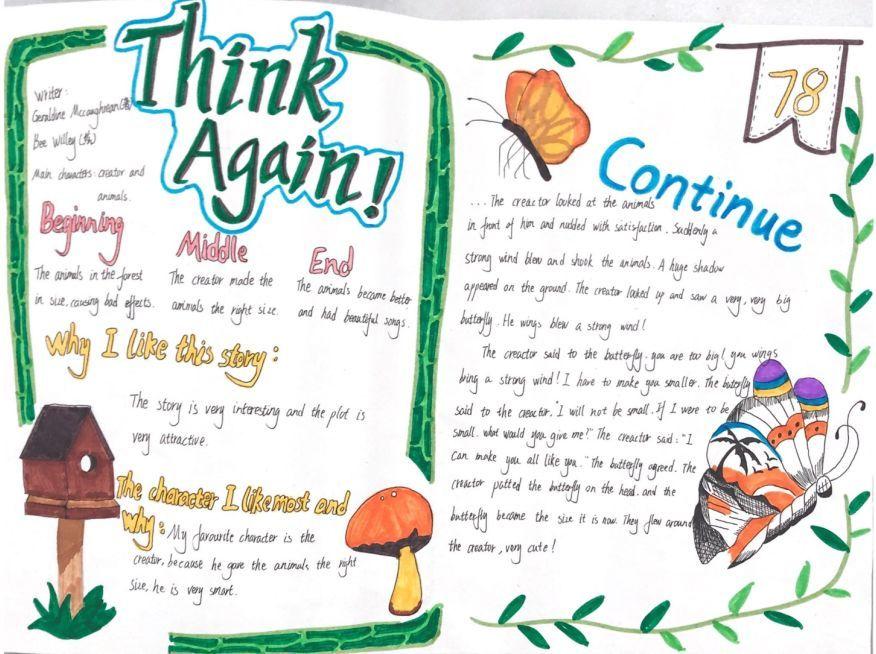 Think
Again!
Writer:
Geraldine Mccaughrean
Bee Willey
Main characters: creator and
animals.
Beginning
The animals in the forest
in size, causing bad effects.
Middle
The creator made the
animals the right size.
End
The animals became better
and had beautiful songs.
Why I like this story:
The story is very interesting and the plot is
very attractive.
The character I like most and
why:
My favourite character is the
creator, because he gave the animals the right
size, he is very smart.
78
Continue
... The creactor looked at the animals
in front of him and nodded with satisfaction. Suddenly a
strong wind blew and shook the animals. A huge shadow
appeared on the ground. The creator looked up and saw a very, very big
butterfly. He wings blew a strong wind!
The creactor said to the butterfly. you are too big! you wings
bing a strong wind! I have to make you smaller. The butterfly
said to the creactor, "I will not be small. If I were to be
small. what would you give me?" The creactor said: "I
can make you all like you." The butterfly agreed. The
creactor patted the butterfly on the head. and the
butterfly became the size it is now. They flew around
the creator, very cute!